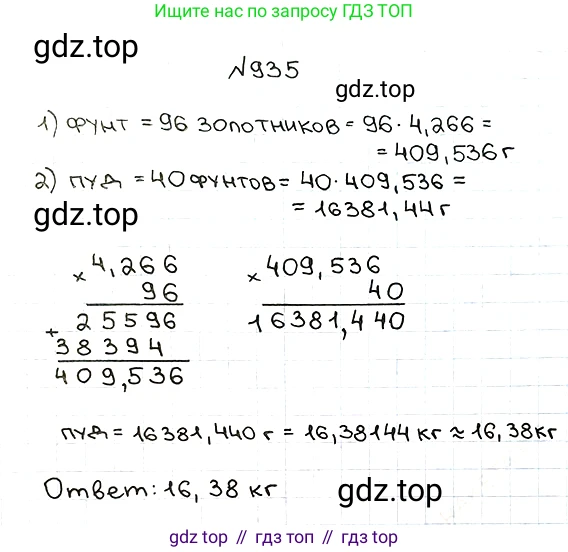 Ищите нас по запросу ГДЗ ТОП
gdz.top
№935
gdz.top
1) фунт = 96 золотников = 96 · 4,266 =
= 409,536 г
2) пуд = 40 фунтов = 40 · 409,536 =
gdz.top
= 16381,44 г
4,266
× 96
+ 25596
38394
409,536
409,536
× 40
16381,440
пуд = 16381,440 г = 16,38144 кг ≈ 16,38 кг
Ответ: 16,38 кг
gdz.top
gdz.top // gdz топ // gdz.top